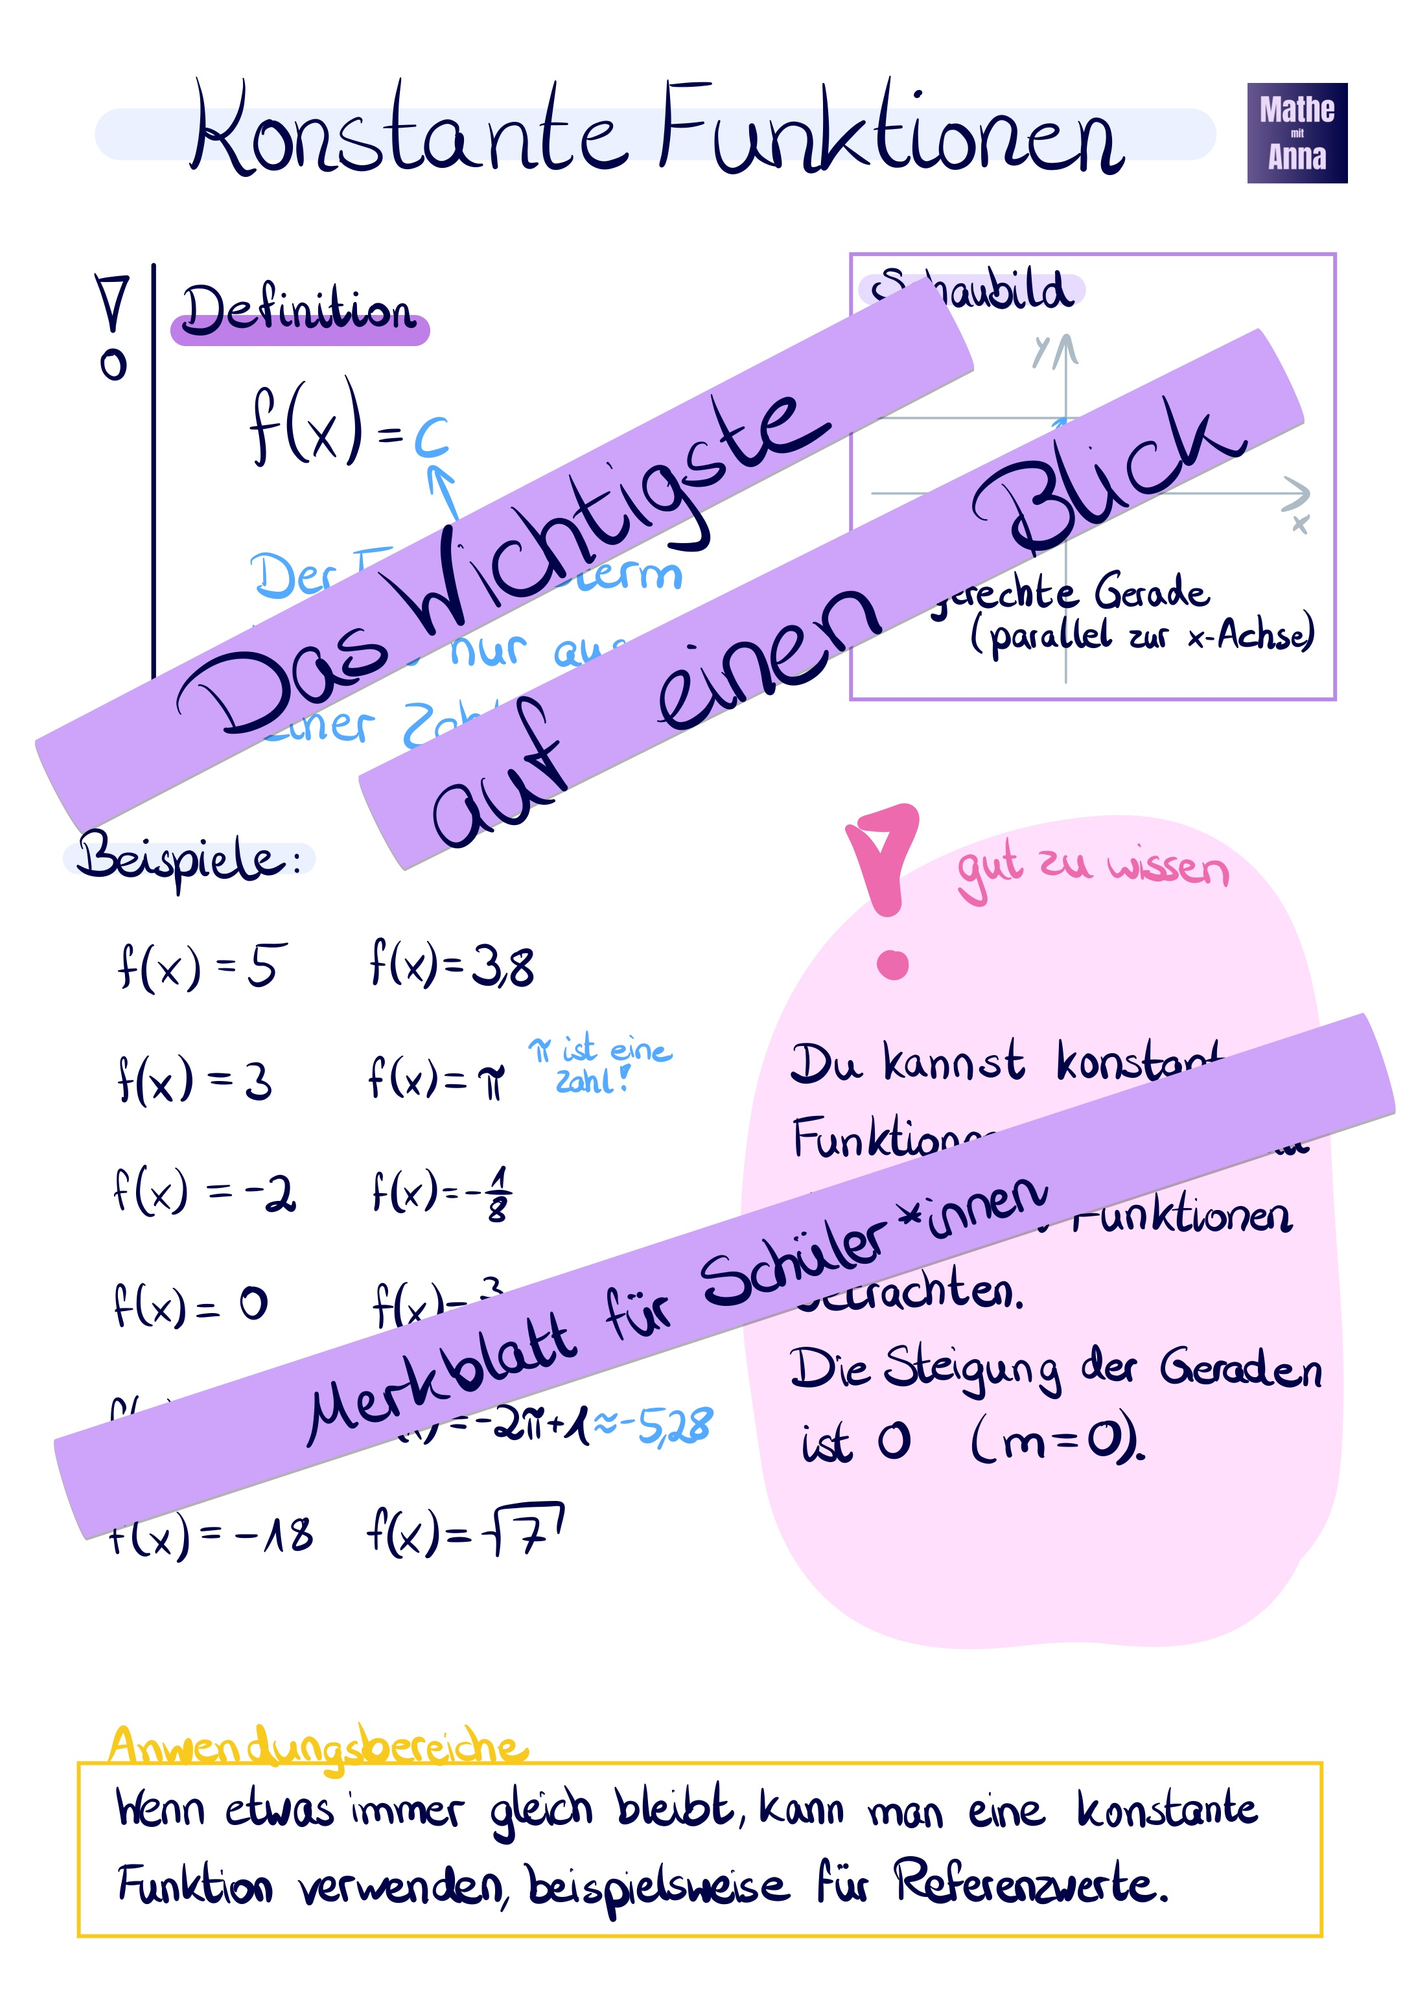 Konstante Funktionen
Mathe
mit
Anna
Definition
f(x) = c
Der
nur
einer
Schaubild
y
x
gerechte Gerade
(parallel zur x-Achse)
Das Wichtigste
auf einen Blick
Beispiele:
f(x) = 5
f(x) = 3,8
f(x) = 3
f(x) = π
π ist eine
Zahl!
f(x) = -2
f(x) = -1/8
f(x) = 0
f(x) =
= -2π+1 ≈ -5,28
f(x) = -18
f(x) = √7
! gut zu wissen
Du kannst
Funktionen
betrachten.
Die Steigung der Geraden
ist 0 (m=0).
Merkblatt für Schüler*innen
Anwendungsbereiche
Wenn etwas immer gleich bleibt, kann man eine konstante
Funktion verwenden, beispielsweise für Referenzwerte.